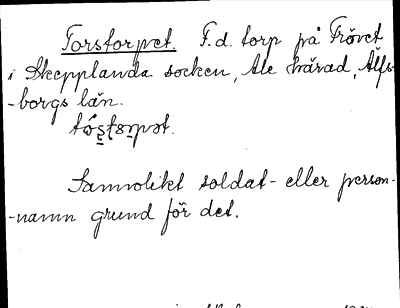 Torstorpet. F.d. torp på Frövet
i Skepplanda socken, Ale härad, Älfs-
-borgs län.
Sannolikt soldat- eller person-
-namn grund för det.